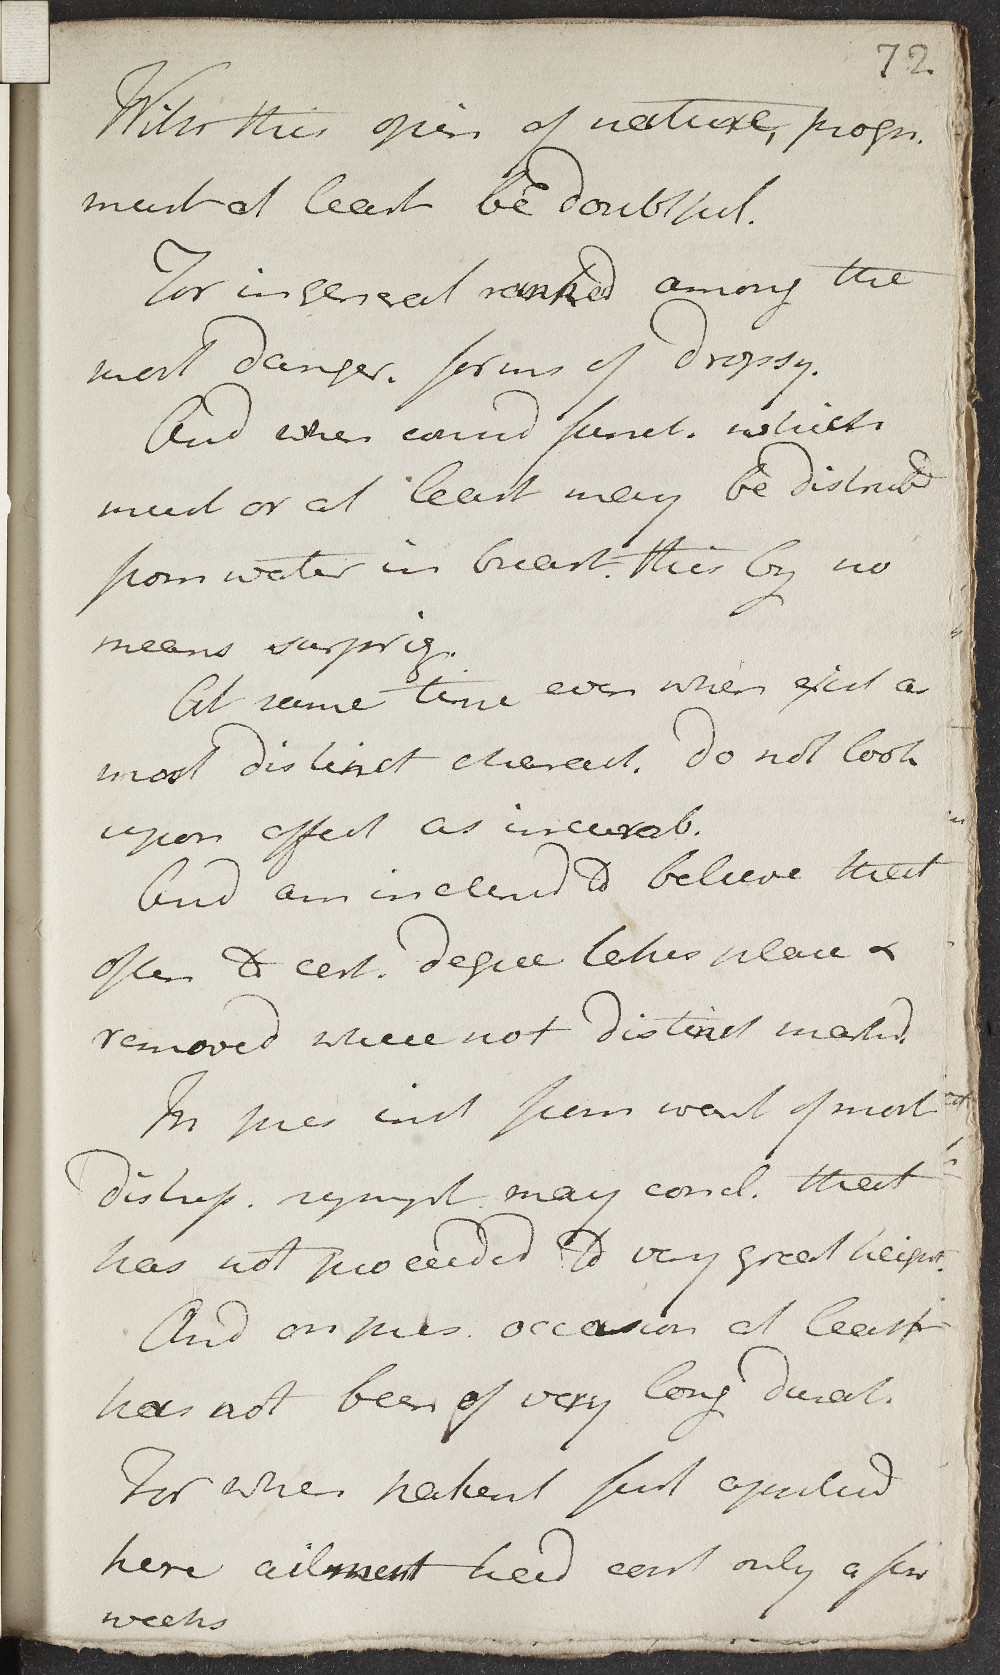 72
With this opin of nature, progn.
must at least be doubtful.
For in general ranked among the
most danger. forms of dropsy.
And when consid funct. which
must or at least may be disturbd
from water in breast. this by no
means surprig.
At same time even when exist as
most distinct charact. do not look
upon affect as incurab.
And am inclend to believe that
often to cert. degree takes place &
removed where not distinct markd.
In pres inst from want of most
distress. sympt. may concl. that
has not proceeded to very great height.
And on pres. occasion at least
has not been of very long durat.
For when patient first applied
here ailment had cont only a few
weeks